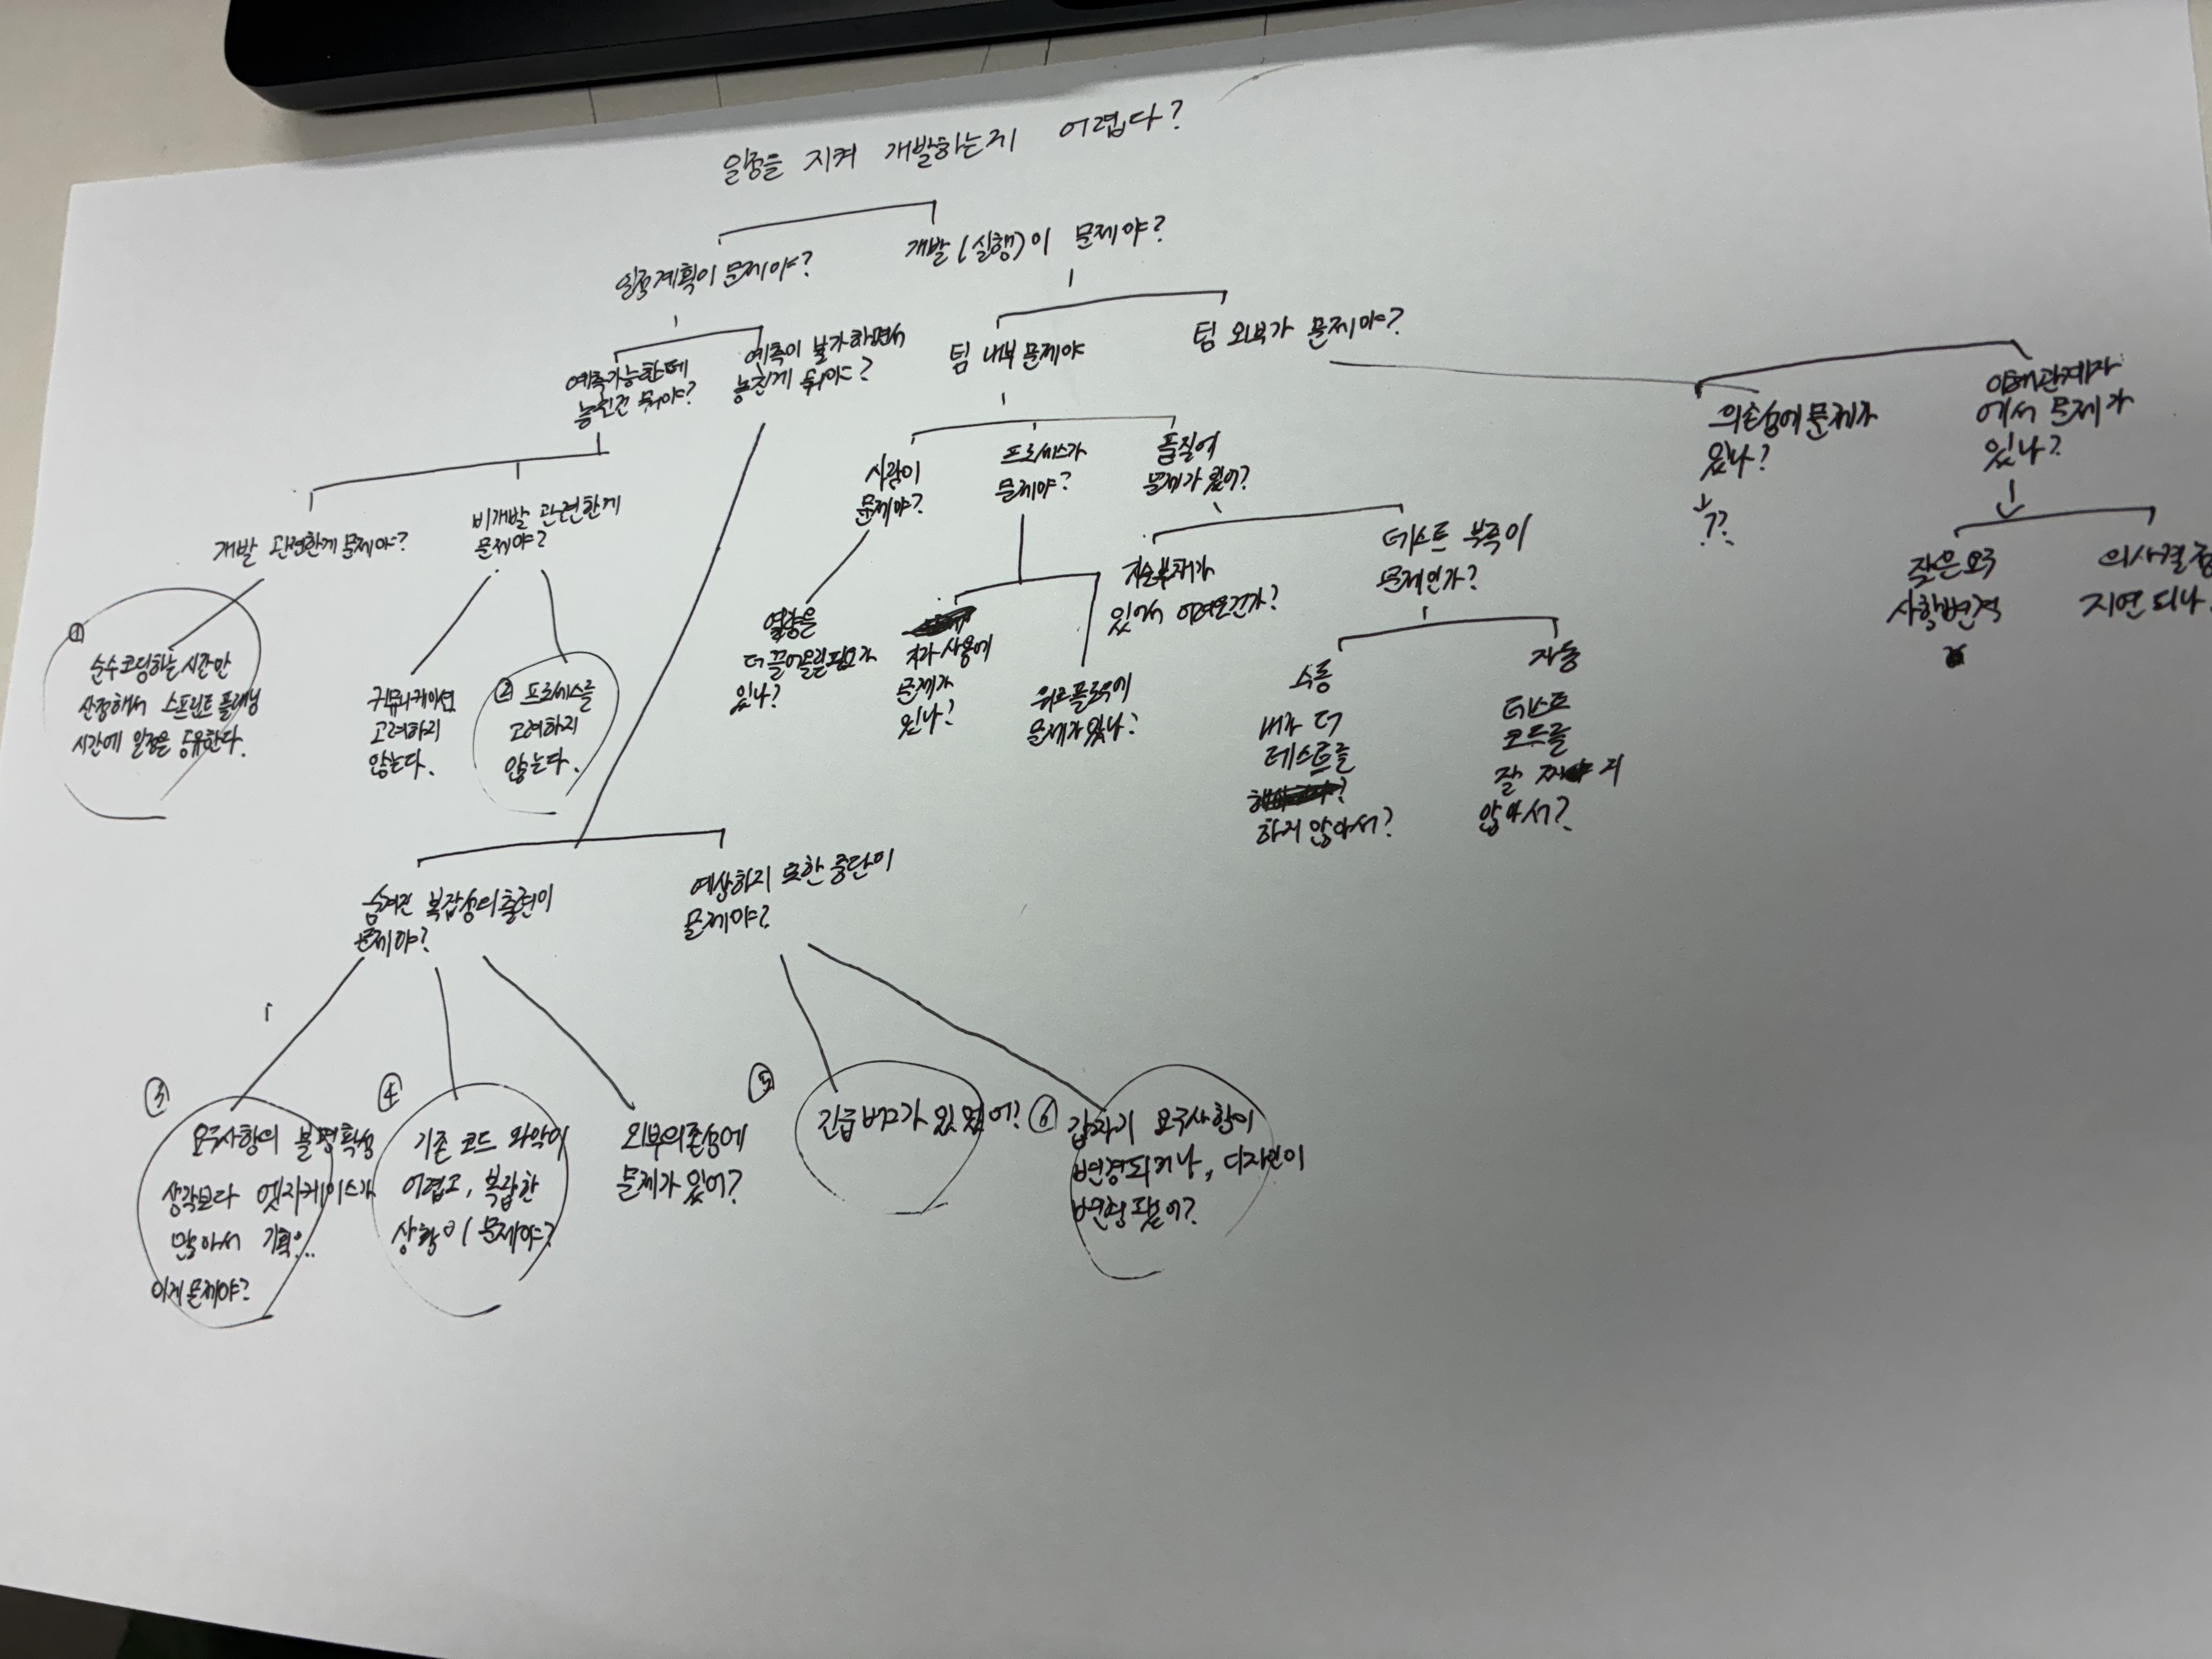 일정을 지켜 개발하는게 어렵다?
일정계획이 문제야?
개발(실행)이 문제야?
예측가능한데
놓친건 뭐야?
예측이 불가하면서
놓친게 뭐야?
팀 내부 문제야
팀 외부가 문제야?
개발 관련한게 문제야?
비개발 관련한게
문제야?
사람이
문제야?
프로세스가
문제야?
품질에
문제가 있어?
의존성에 문제가
있나?
??
이해관계자
에서 문제가
있나?
①
순수코딩하는 시간만
산정해서 스프린트 플래닝
시간에 일정을 공유한다.
커뮤니케이션
고려하지
않는다.
② 프로세스를
고려하지
않는다.
역량을
더 끌어올릴 필요가
있나?
사용에
문제가
있나?
워크플로우에
문제가 있나?
기술부채가
있어서 어려운건가?
테스트 부족이
문제인가?
수동
내가 더
테스트를
하지 않아서?
자동
테스트
코드를
잘 짜지
않아서?
잦은 요구
사항변경
의사결정
지연되나.
숨겨진 복잡성의 출현이
문제야?
예상하지 못한 중단이
문제야?
③
요구사항의 불명확성
생각보다 엣지케이스가
많아서 기획..
이게 문제야?
④
기존 코드 파악이
어렵고, 복잡한
상황이 문제야?
외부의존성에
문제가 있어?
⑤
긴급버그가 있었어?
⑥
갑자기 요구사항이
변경되거나, 디자인이
변경됐어?